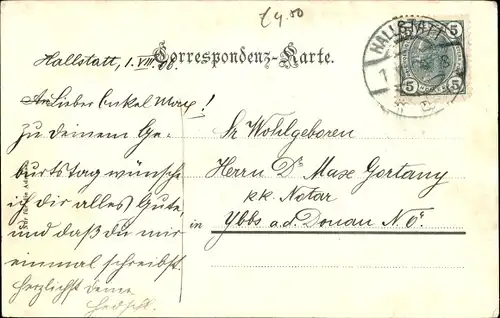 £4.50
Correspondenz-Karte.
HALLSTATT
5 5
5 5
Hallstatt, 1. VIII.
Lieber Onkel Max!
Zu deinem Ge-
burtstag wünsche
ich dir alles Gute,
und daß du mir
einmal schreibst.
Herzlichst deine
Sr Wohlgeboren
Herrn Dr Max Gortany
k k. Notar
in Ybbs a.d. Donau N.Ö.